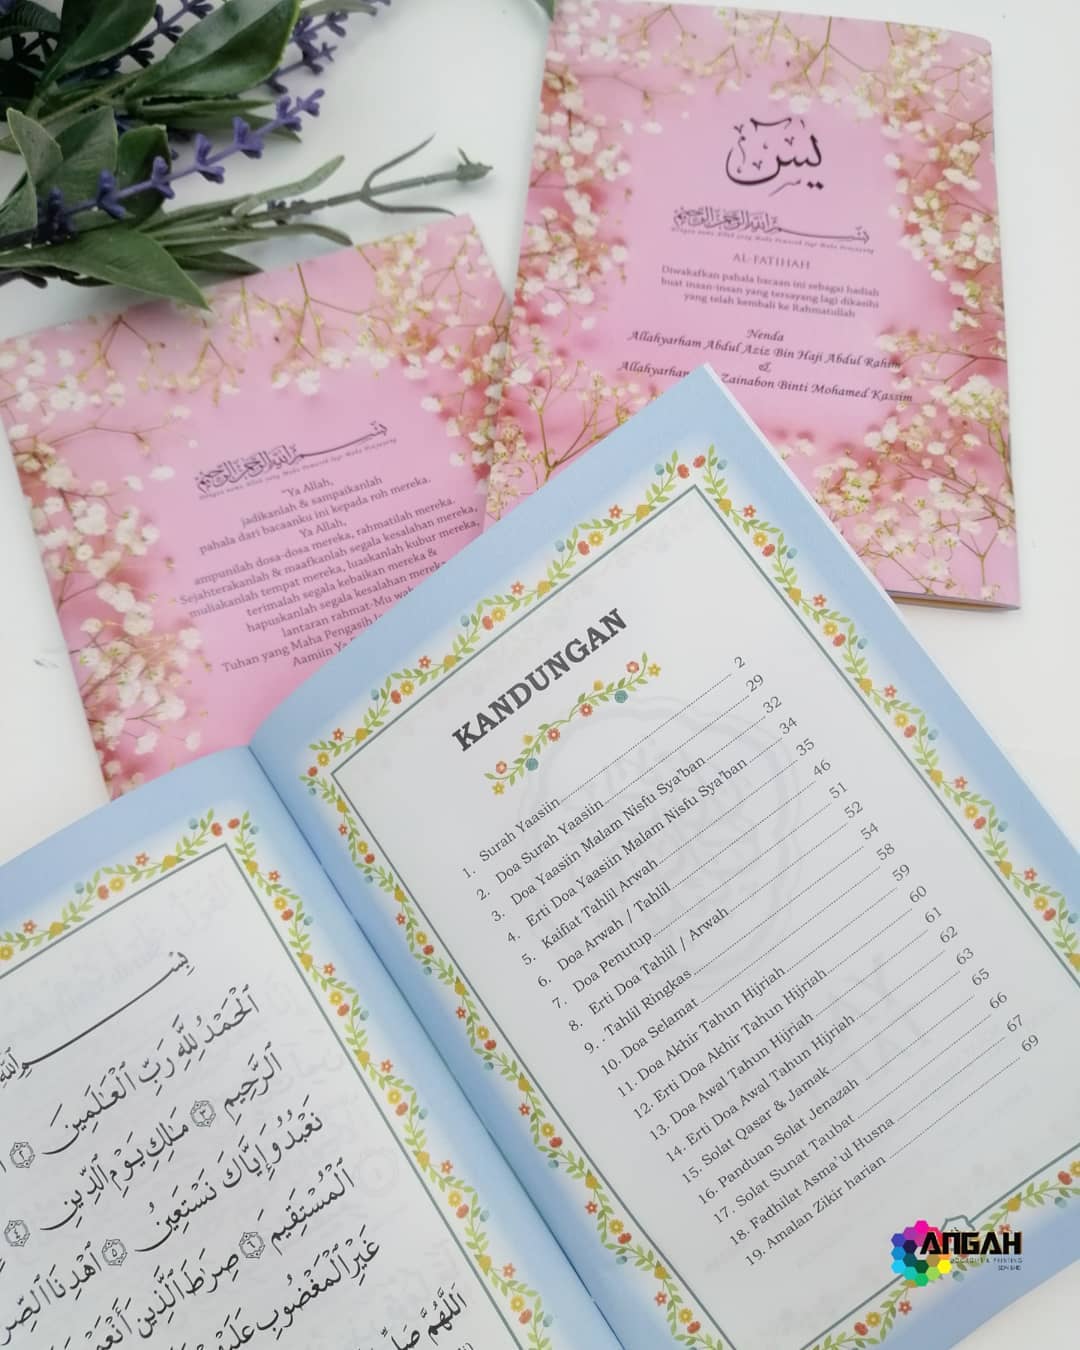 يس
بسم الله الرحمن الرحيم
Dengan nama Allah yang Maha Pemurah lagi Maha Penyayang
AL-FATIHAH
Diwakafkan pahala bacaan ini sebagai hadiah
buat insan-insan yang tersayang lagi dikasihi
yang telah kembali ke Rahmatullah
Nenda
Allahyarham Abdul Aziz Bin Haji Abdul Rahim
&
Allahyarham Zainabon Binti Mohamed Kassim
بسم الله الرحمن الرحيم
Dengan nama Allah yang Maha Pemurah lagi Maha Penyayang
"Ya Allah,
jadikanlah & sampaikanlah
pahala dari bacaanku ini kepada roh mereka.
Ya Allah,
ampunilah dosa-dosa mereka, rahmatilah mereka.
Sejahterakanlah & maafkanlah segala kesalahan mereka,
muliakanlah tempat mereka, luaskanlah kubur mereka,
terimalah segala kebaikan mereka &
hapuskanlah segala kesalahan
lantaran rahmat-Mu
Tuhan yang Maha Pengasih
Aamiin
KANDUNGAN
1. Surah Yaasiin 2
2. Doa Surah Yaasiin 29
3. Doa Yaasiin Malam Nisfu Sya'ban 32
4. Erti Doa Yaasiin Malam Nisfu Sya'ban 34
5. Kaifiat Tahlil Arwah 35
6. Doa Arwah / Tahlil 46
7. Doa Penutup 51
8. Erti Doa Tahlil / Arwah 52
9. . Tahlil Ringkas 54
10. Doa Selamat 58
11. Doa Akhir Tahun Hijriah 59
12. Erti Doa Akhir Tahun Hijriah 60
13. Doa Awal Tahun Hijriah 61
14. Erti Doa Awal Tahun Hijriah 62
15. Solat Qasar & Jamak 63
16. Panduan Solat Jenazah 65
17. Solat Sunat Taubat 66
18. Fadhilat Asma'ul Husna 67
19. Amalan Zikir harian 69
بِسْمِ اللَّهِ
ٱلْحَمْدُ لِلَّهِ رَبِّ ٱلْعَٰلَمِينَ ٢
ٱلرَّحِيمِ ٣ مَٰلِكِ يَوْمِ ٱلدِّينِ ٤
نَعْبُدُ وَإِيَّاكَ نَسْتَعِينُ ٥ ٱهْدِنَا
ٱلْمُسْتَقِيمَ ٦ صِرَٰطَ ٱلَّذِينَ أَنْعَمْتَ
غَيْرِ ٱلْمَغْضُوبِ
اَللَّهُمَّ
ANGAH
SDN BHD